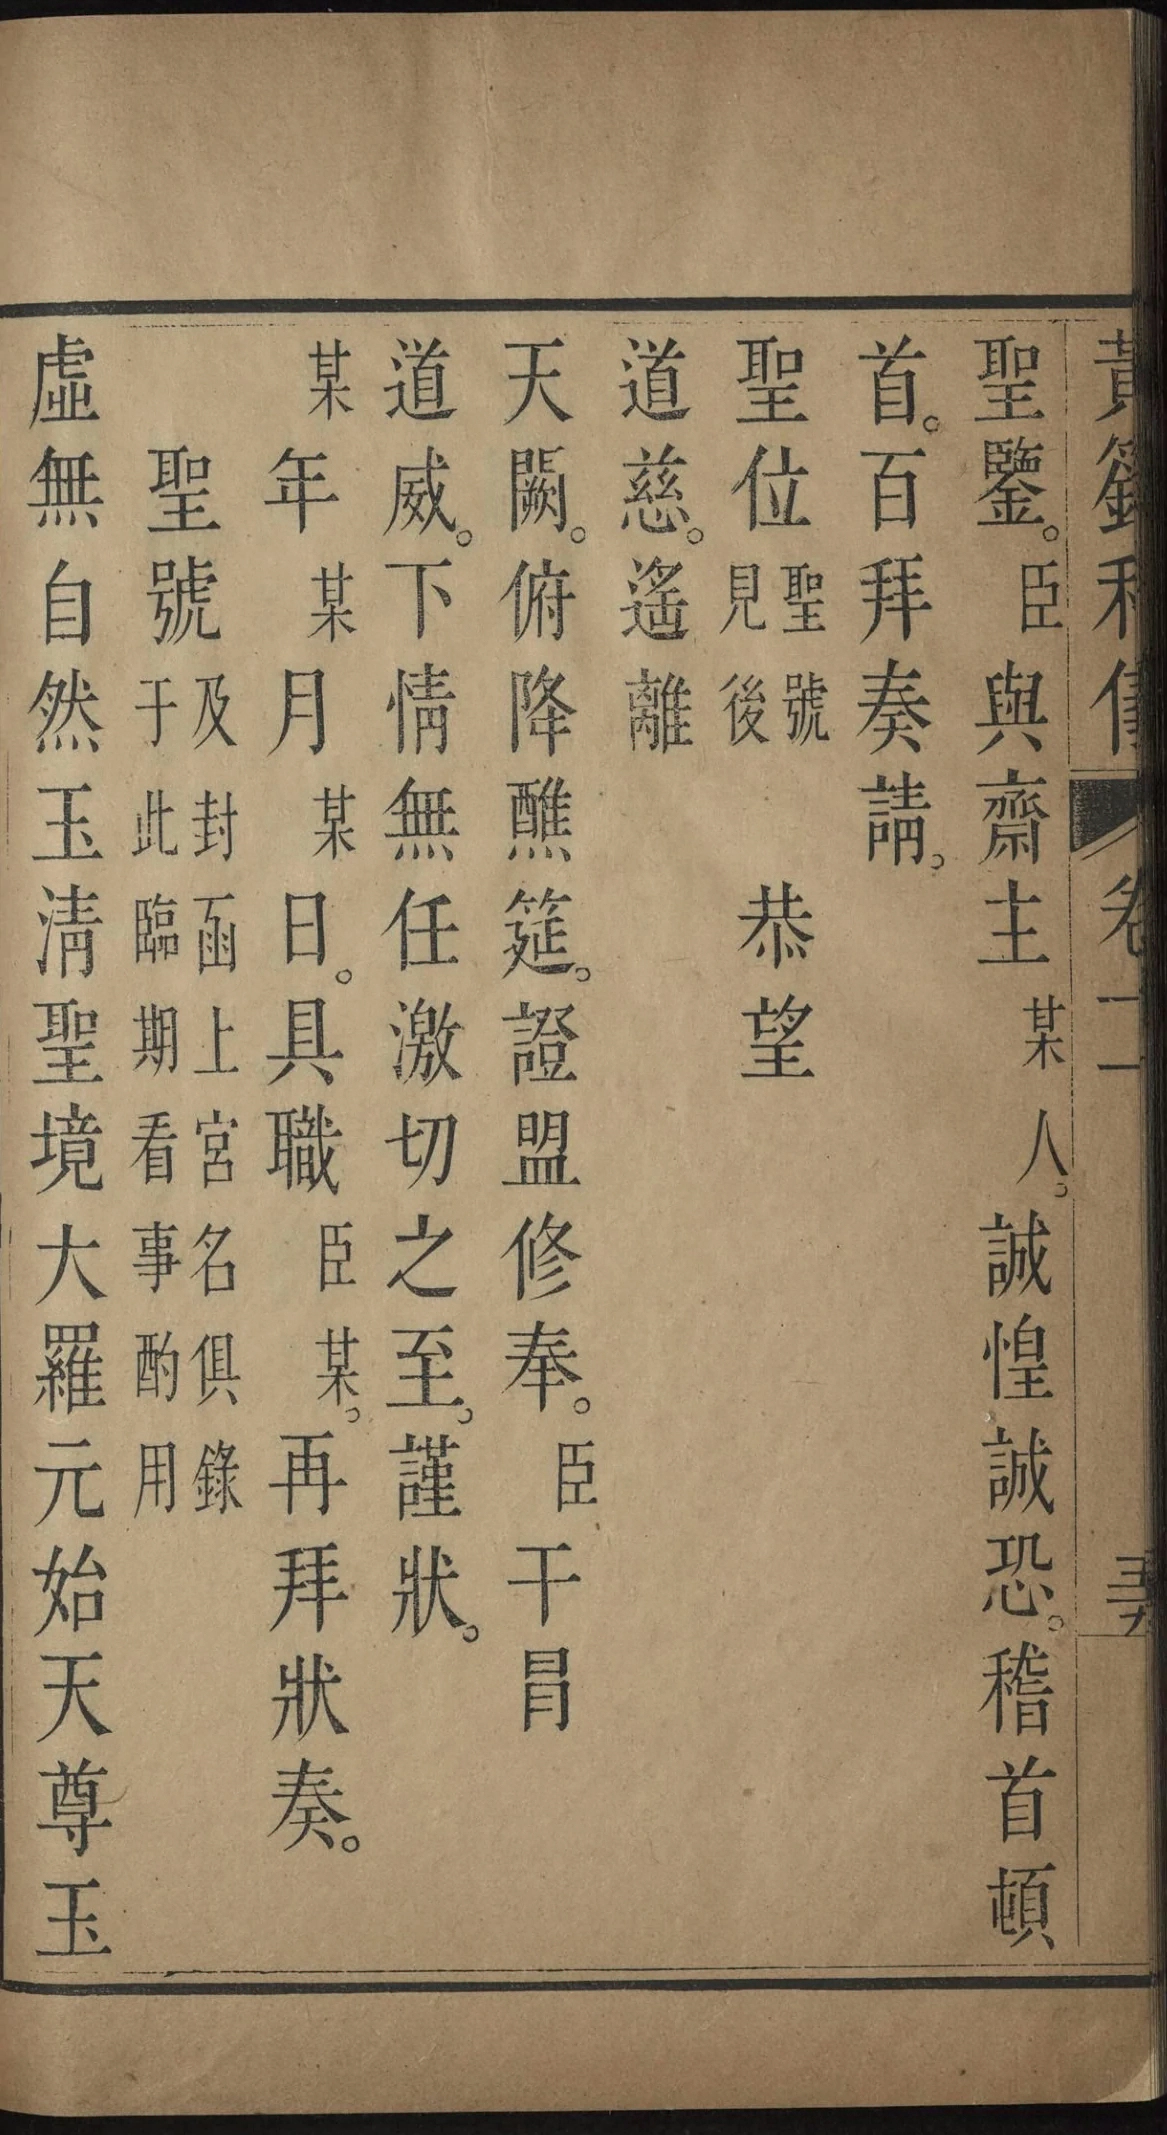 黃籙科儀 卷十二
聖鑒。臣與齋主某人。誠惶誠恐。稽首頓
首。百拜奏請。
聖位聖號見後 恭望
道慈。遙離
天闕。俯降醮筵。證盟修奉。臣干冒
道威。下情無任激切之至。謹狀。
某年某月某日。具職臣某。再拜狀奏。
聖號及封函上宮名俱錄于此臨期看事酌用
虛無自然玉清聖境大羅元始天尊玉